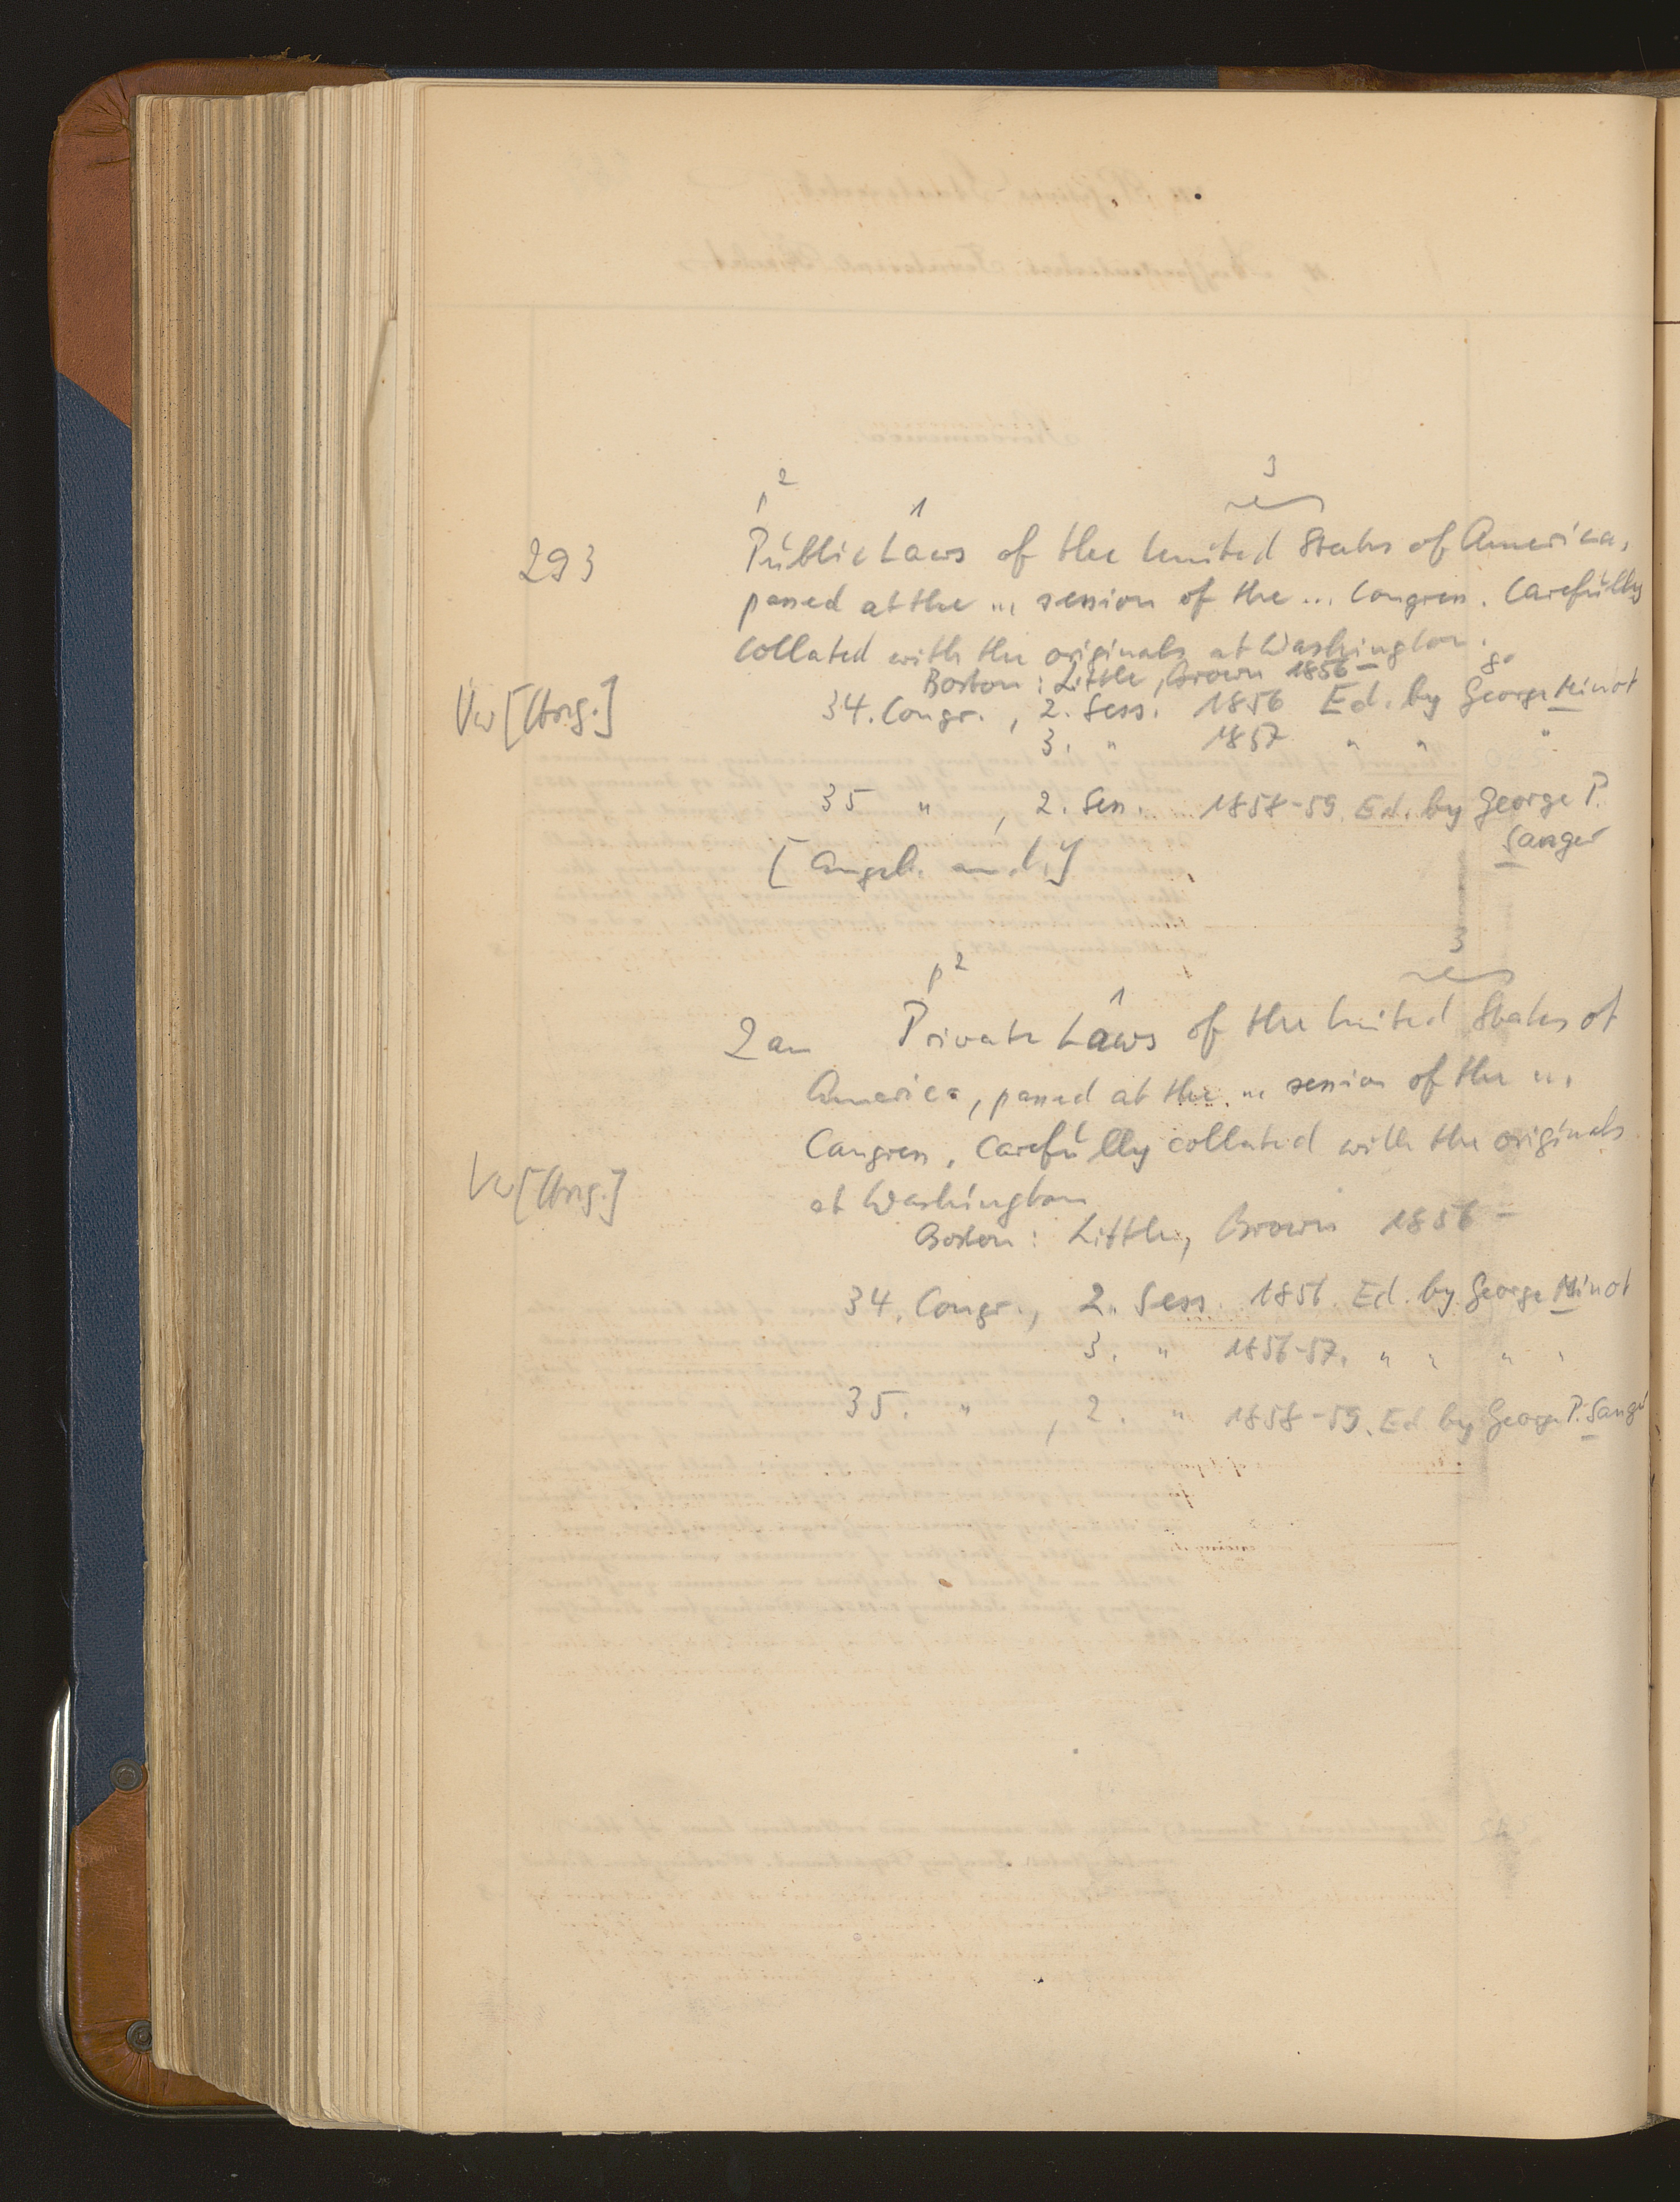 2
3
p 1
293 Public Laws of the United States of America,
passed at the ... session of the ... Congress. Carefully
collated with the originals at Washington. 8°
Boston: Little, Brown 1856-
Vw[Hrsg.] 34. Congr., 2. Sess. 1856 Ed. by George Minot
3. " 1857 " " "
35 " , 2. Sess. 1858-59. Ed. by George P.
Sanger
[Angeb. an d.]
3
p 2
1
2 an Private Laws of the United States of
America, passed at the ... session of the ...
Congress, Carefully collated with the originals
Vw[Hrsg.] at Washington
Boston: Little, Brown 1856-
34. Congr., 2. Sess. 1856. Ed. by George Minot
3. " 1856-57. " " " "
35. " , 2. " 1858-59. Ed by George P. Sanger